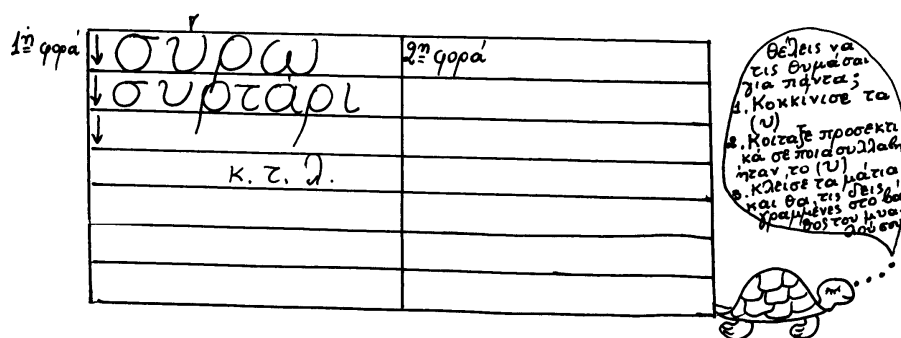 1η φορά
σύρω
2η φορά
συρτάρι
κ. τ. λ.
θέλεις να
τις θυμάσαι
για πάντα;
1. Κοκκίνισε τα
(υ)
2. Κοίταξε προσεκτι
κά σε ποια συλλαβή
ήταν το (υ)
3. Κλείσε τα μάτια
και θα τις δεις
γραμμένες στο βά
θος του μυα
λού σου